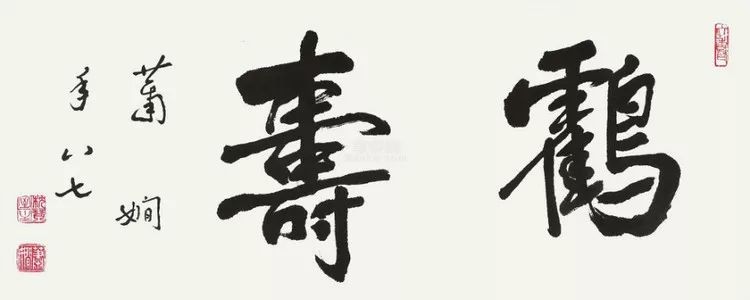 鸖壽
蕭嫻
年八七